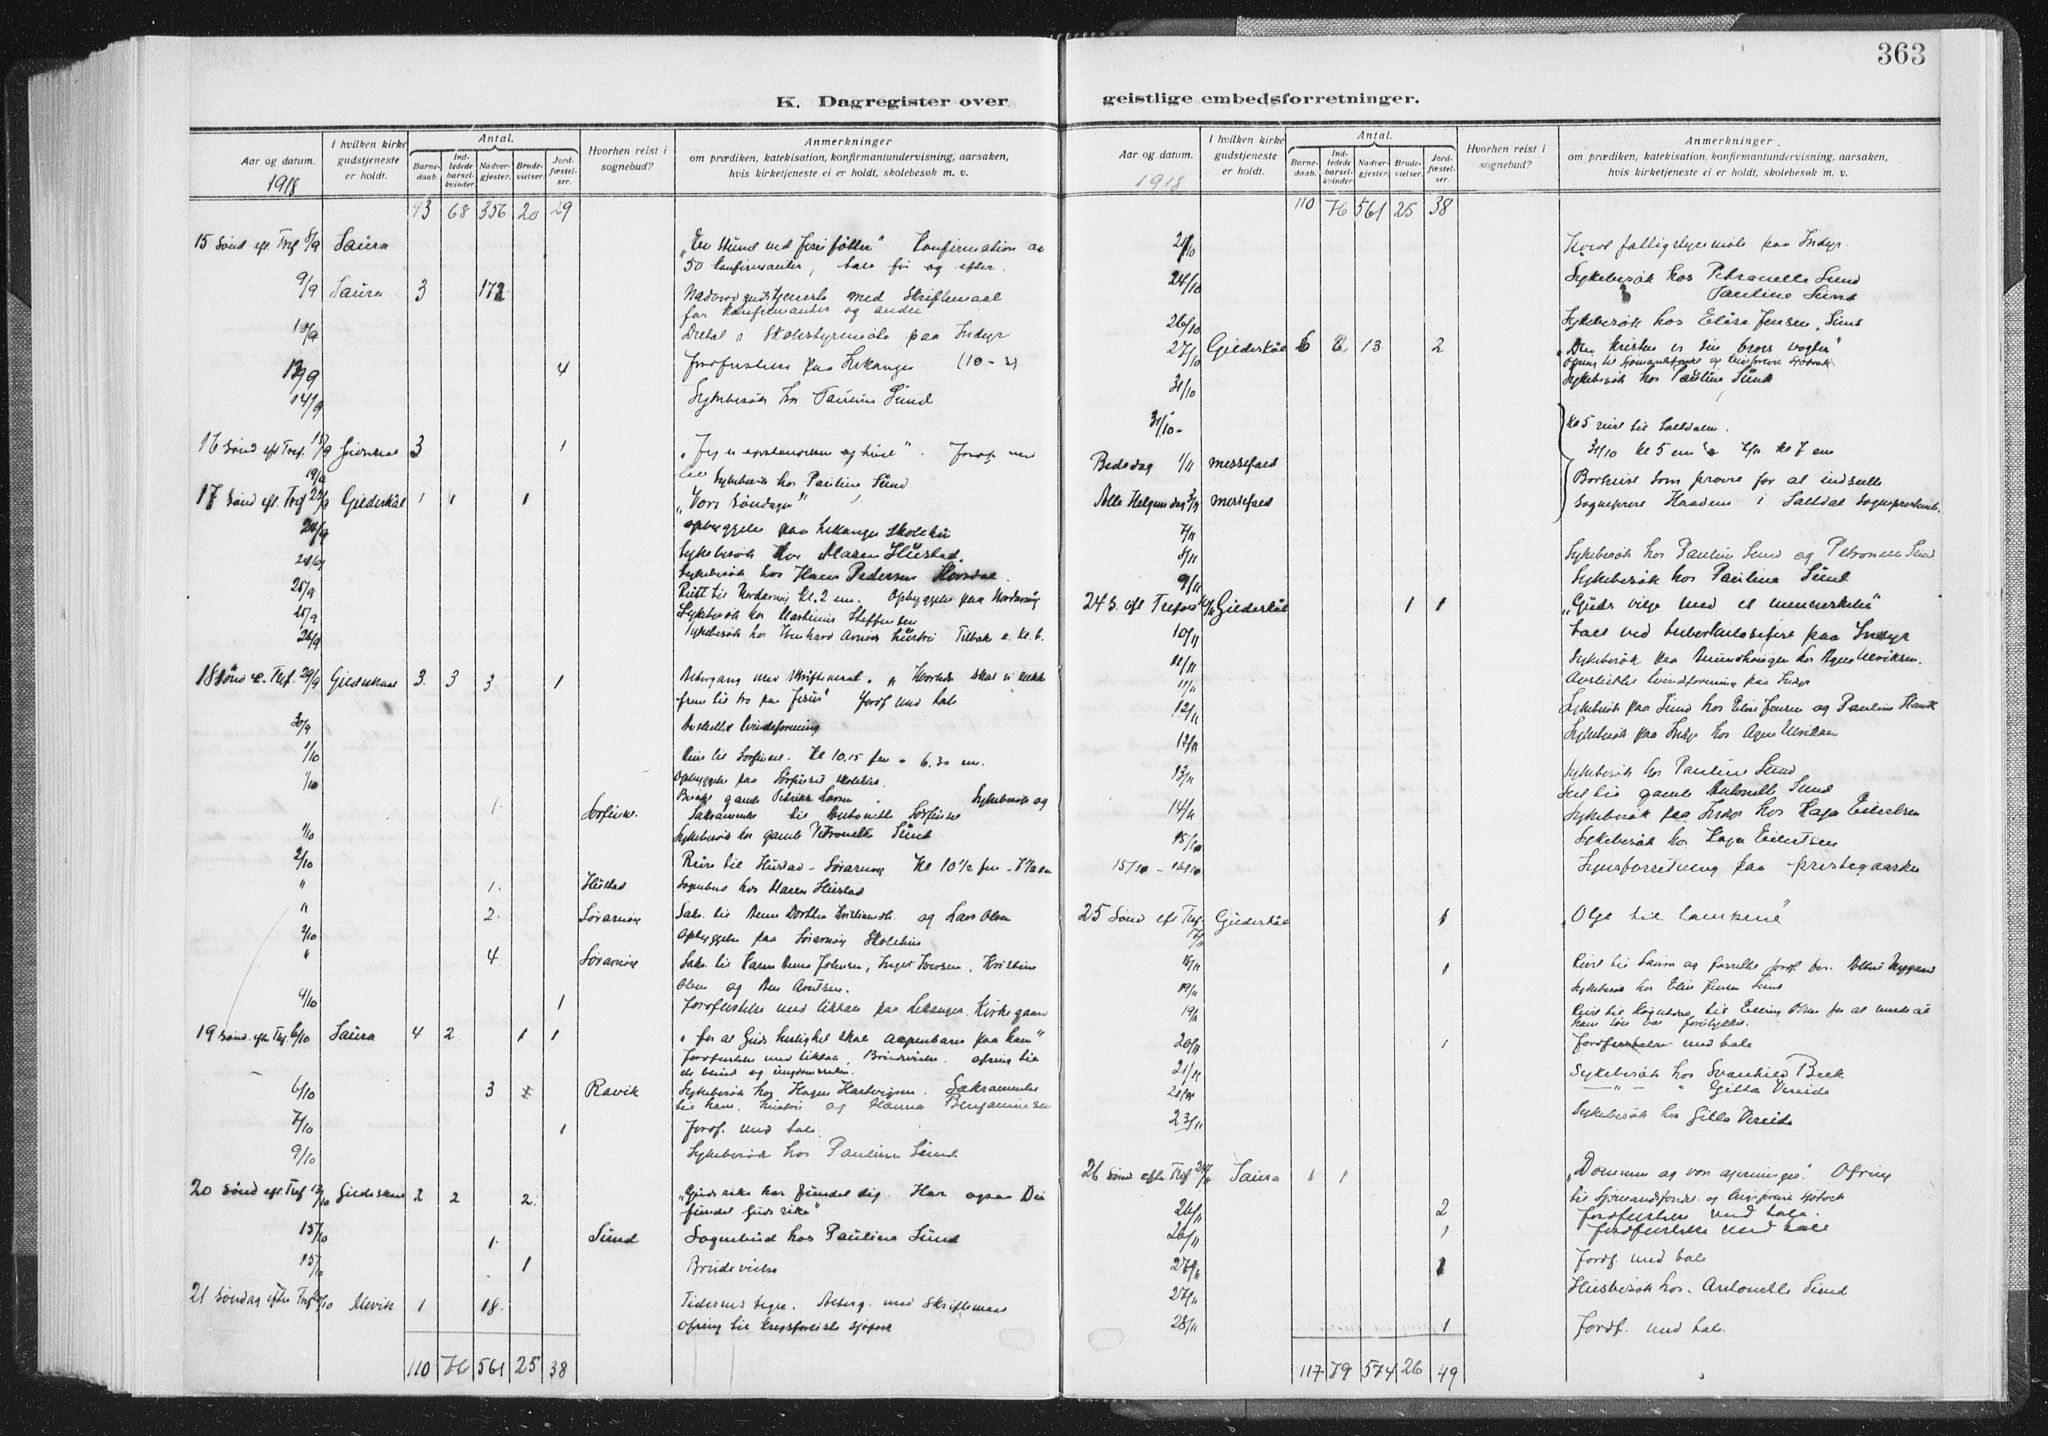 363
K. Dagregister over
geistlige embedsforretninger.
Aar og datum.
1918
I hvilken kirke gudstjeneste er holdt.
Antal.
Barnedaab.
Indledede barselkvinder.
Nadvergjester.
Brudevielser.
Jordfæstelser.
Hvorhen reist i sognebud?
Anmerkninger
om prædiken, katekisation, konfirmantundervisning, aarsaken,
hvis kirketjeneste ei er holdt, skolebesøk m. v.
93 68 356 20 29
15 Sønd eft. Tref 8/9 Saura "En stund ved Jesu føtter" Konfirmation av
50 konfirmanter, tale før og efter.
9/9 Saura 3 172 Nadverdgudstjeneste med Skriftemaal
for konfirmanter og andre
Deltat i Skolestyremøte paa Indyr
4 Jordfæstelse paa Lekanger
14/9 Sykebesøk hos Pauline Sund
16 Sønd eft Tref. 15/9 3 1 "Jeg er opstandelsen og livet".
19/9 Sykebesøk hos Pauline Sund
17 Sønd ef. Tref 22/9 Gildeskål 1 1 1 "Vore søndager"
opbyggelse paa Lekanger Skolehus
24/9 Sykebesøk hos Maren Hustad
Sykebesøk hos Hans Pedersen
25/9 Reist til Nordarnøy kl. 2 em. Opbyggelse paa Nordarnøy
25/9 Sykebesøk hos Martinus Steffensen
26/9 Tilbake e. kl. 6.
18 Sønd e. Tref. 29/9 Gildeskaal 3 3 3 1 Altergang med skriftemaal.
frem til tro paa Jesus" Jordf med tale
30/9 Avsluttet kvindeforening
1/10 Reise til Sørfinset. Kl 10.15 fm - 6.30 em.
1/10 Opbyggelse paa Sørfinset skolehus.
1 Sørfinset Sykebesøk og
Sakramente til Antonette Sørfinset
1/10 Sykebesøk hos gamle Petronelle Sund
2/10 Reise til Hustad - Sørarnøy Kl 10½ fm
" 1 Hustad Sognebud hos Maren Hustad
" 2 Sørarnøy og Lars Olsen
2/10 Opbyggelse paa Sørarnøy Skolehus
" 4 Sørarnøy Sakr. til Karen Anna Johnsen, Inger Iversen, Kristine
Olsen og
4/10 1 Jordfæstelse med liktale paa Lekanger Kirkegaard
19 Sønd. efter Tref. 6/10 Saura 4 2 1 1 "for at Guds herlighet skal aapenbares paa ham"
Jordfæstelse med liktale, Brudevielse. ofring til
de blinde og ungdomssaken.
6/10 3 Ravik Sykebesøk hos Hagen Hartvigsen. Sakramente
til ham, hustru og Hanna Benjaminsen
7/10 1 Jordf. med tale
9/10 Sykebesøk hos Pauline Sund
20 Sønd eft. Tref 13/10 Gildeskaal 2 2 2 "Guds rike har fundet dig. Har ogsaa Du
fundet Guds rike"
15/10 1 Sund Sognebud hos Pauline Sund
15/10 1 Brudevielse
21 Søndag efter Tref 20/10 Mevik 1 18 Tidernes tegn. Alterg. med Skriftemaal
ofring til krigsforliste sjøfolk
110 76 561 25 38
Aar og datum.
1918
I hvilken kirke gudstjeneste er holdt.
Antal.
Barnedaab.
Indledede barselkvinder.
Nadvergjester.
Brudevielser.
Jordfæstelser.
Hvorhen reist i sognebud?
Anmerkninger.
om prædiken, katekisation, konfirmantundervisning, aarsaken,
hvis kirketjeneste ei er holdt, skolebesøk m. v.
110 76 561 25 38
fattigstyremøte paa Indyr
24/10 Sykebesøk hos Petronelle Sund
Pauline Sund
26/10 Sykebesøk hos Elise Jensen, Sund
27/10 Gildeskål 6 2 13 2 "Den kristne er sin brors vogter"
31/10 Sykebesøk hos Pauline Sund
31/10 - Kl 5 reist til Saltdalen.
31/10 kl 5 em kl 7 em
Bededag 1/11 messefald Bortreist som provst for at indsætte
Alle Helgens dag 3/11 messefald sogneprest Haaden i Saltdal Sogneprestemb.
7/11
8/11 Sykebesøk hos Pauline Sund og Petronelle Sund
9/11 Sykebesøk hos Pauline Sund
24 S. eft Trefold Gildeskål 1 1 "Guds vilje med et menneskeliv"
10/11 tale ved tuberkulosefest paa Indyr
11/11 Sykebesøk paa hos Agnes Ulriksen.
11/11 Avsluttet kvindeforening paa Indyr
12/11 Sykebesøk paa Sund hos Elise Jensen og Pauline
12/11 Sykebesøk paa Indyr hos Agnes Ulriksen
13/11 Sykebesøk hos Pauline Sund
gamle Antonette Sund
14/11 Sykebesøk paa Indyr hos Kaja Eilertsen
Sykebesøk hos Kaja Eilertsen
Synsforretning paa prestegaarden
25 Sønd eft Tref 17/11 Gildeskål 1 "Olje til lampene"
18/11 1 Reist til Saura og forrettet jordf.
19/11 Sykebesøk hos Elise Jensen Sund
19/11
20/11 1 Jordfæstelse med tale
21/11 Sykebesøk hos Svanhild Beck
— " — " Gitta Vereide
23/11 Sykebesøk hos Gitta Vereide
26 Sønd efter Tref 24/11 Saura 1 1 "Dommen og vore gjerninger". Ofring
til sjømandsfondet og krigsforliste sjøfolk
26/11 2 Jordfæstelse med tale.
26/11 1 Jordfæstelse med tale
27/11 1 Jordf. med tale
27/11 Husbesøk hos Antonette Sund
28/11 1 Jordf. med tale.
117 79 574 26 49